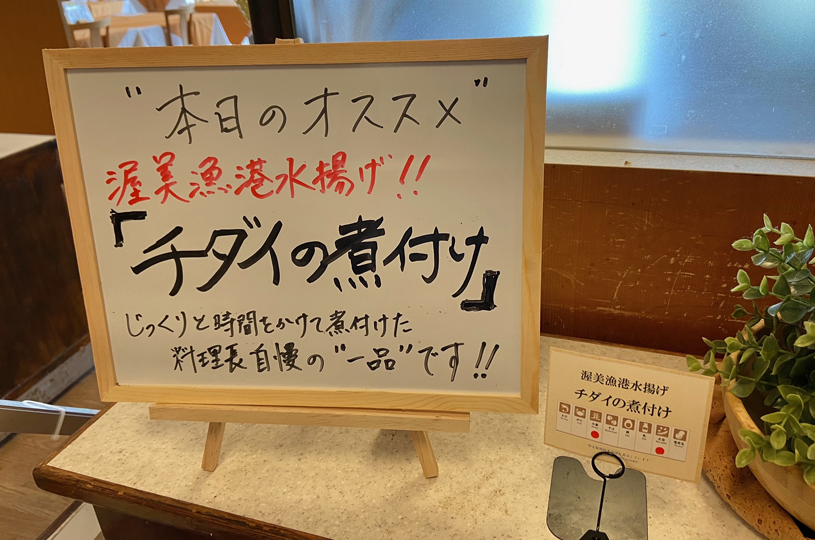 "本日のオススメ"
渥美漁港水揚げ!!
『チダイの煮付け』
じっくりと時間をかけて煮付けた
料理長自慢の"一品"です!!
渥美漁港水揚げ
チダイの煮付け